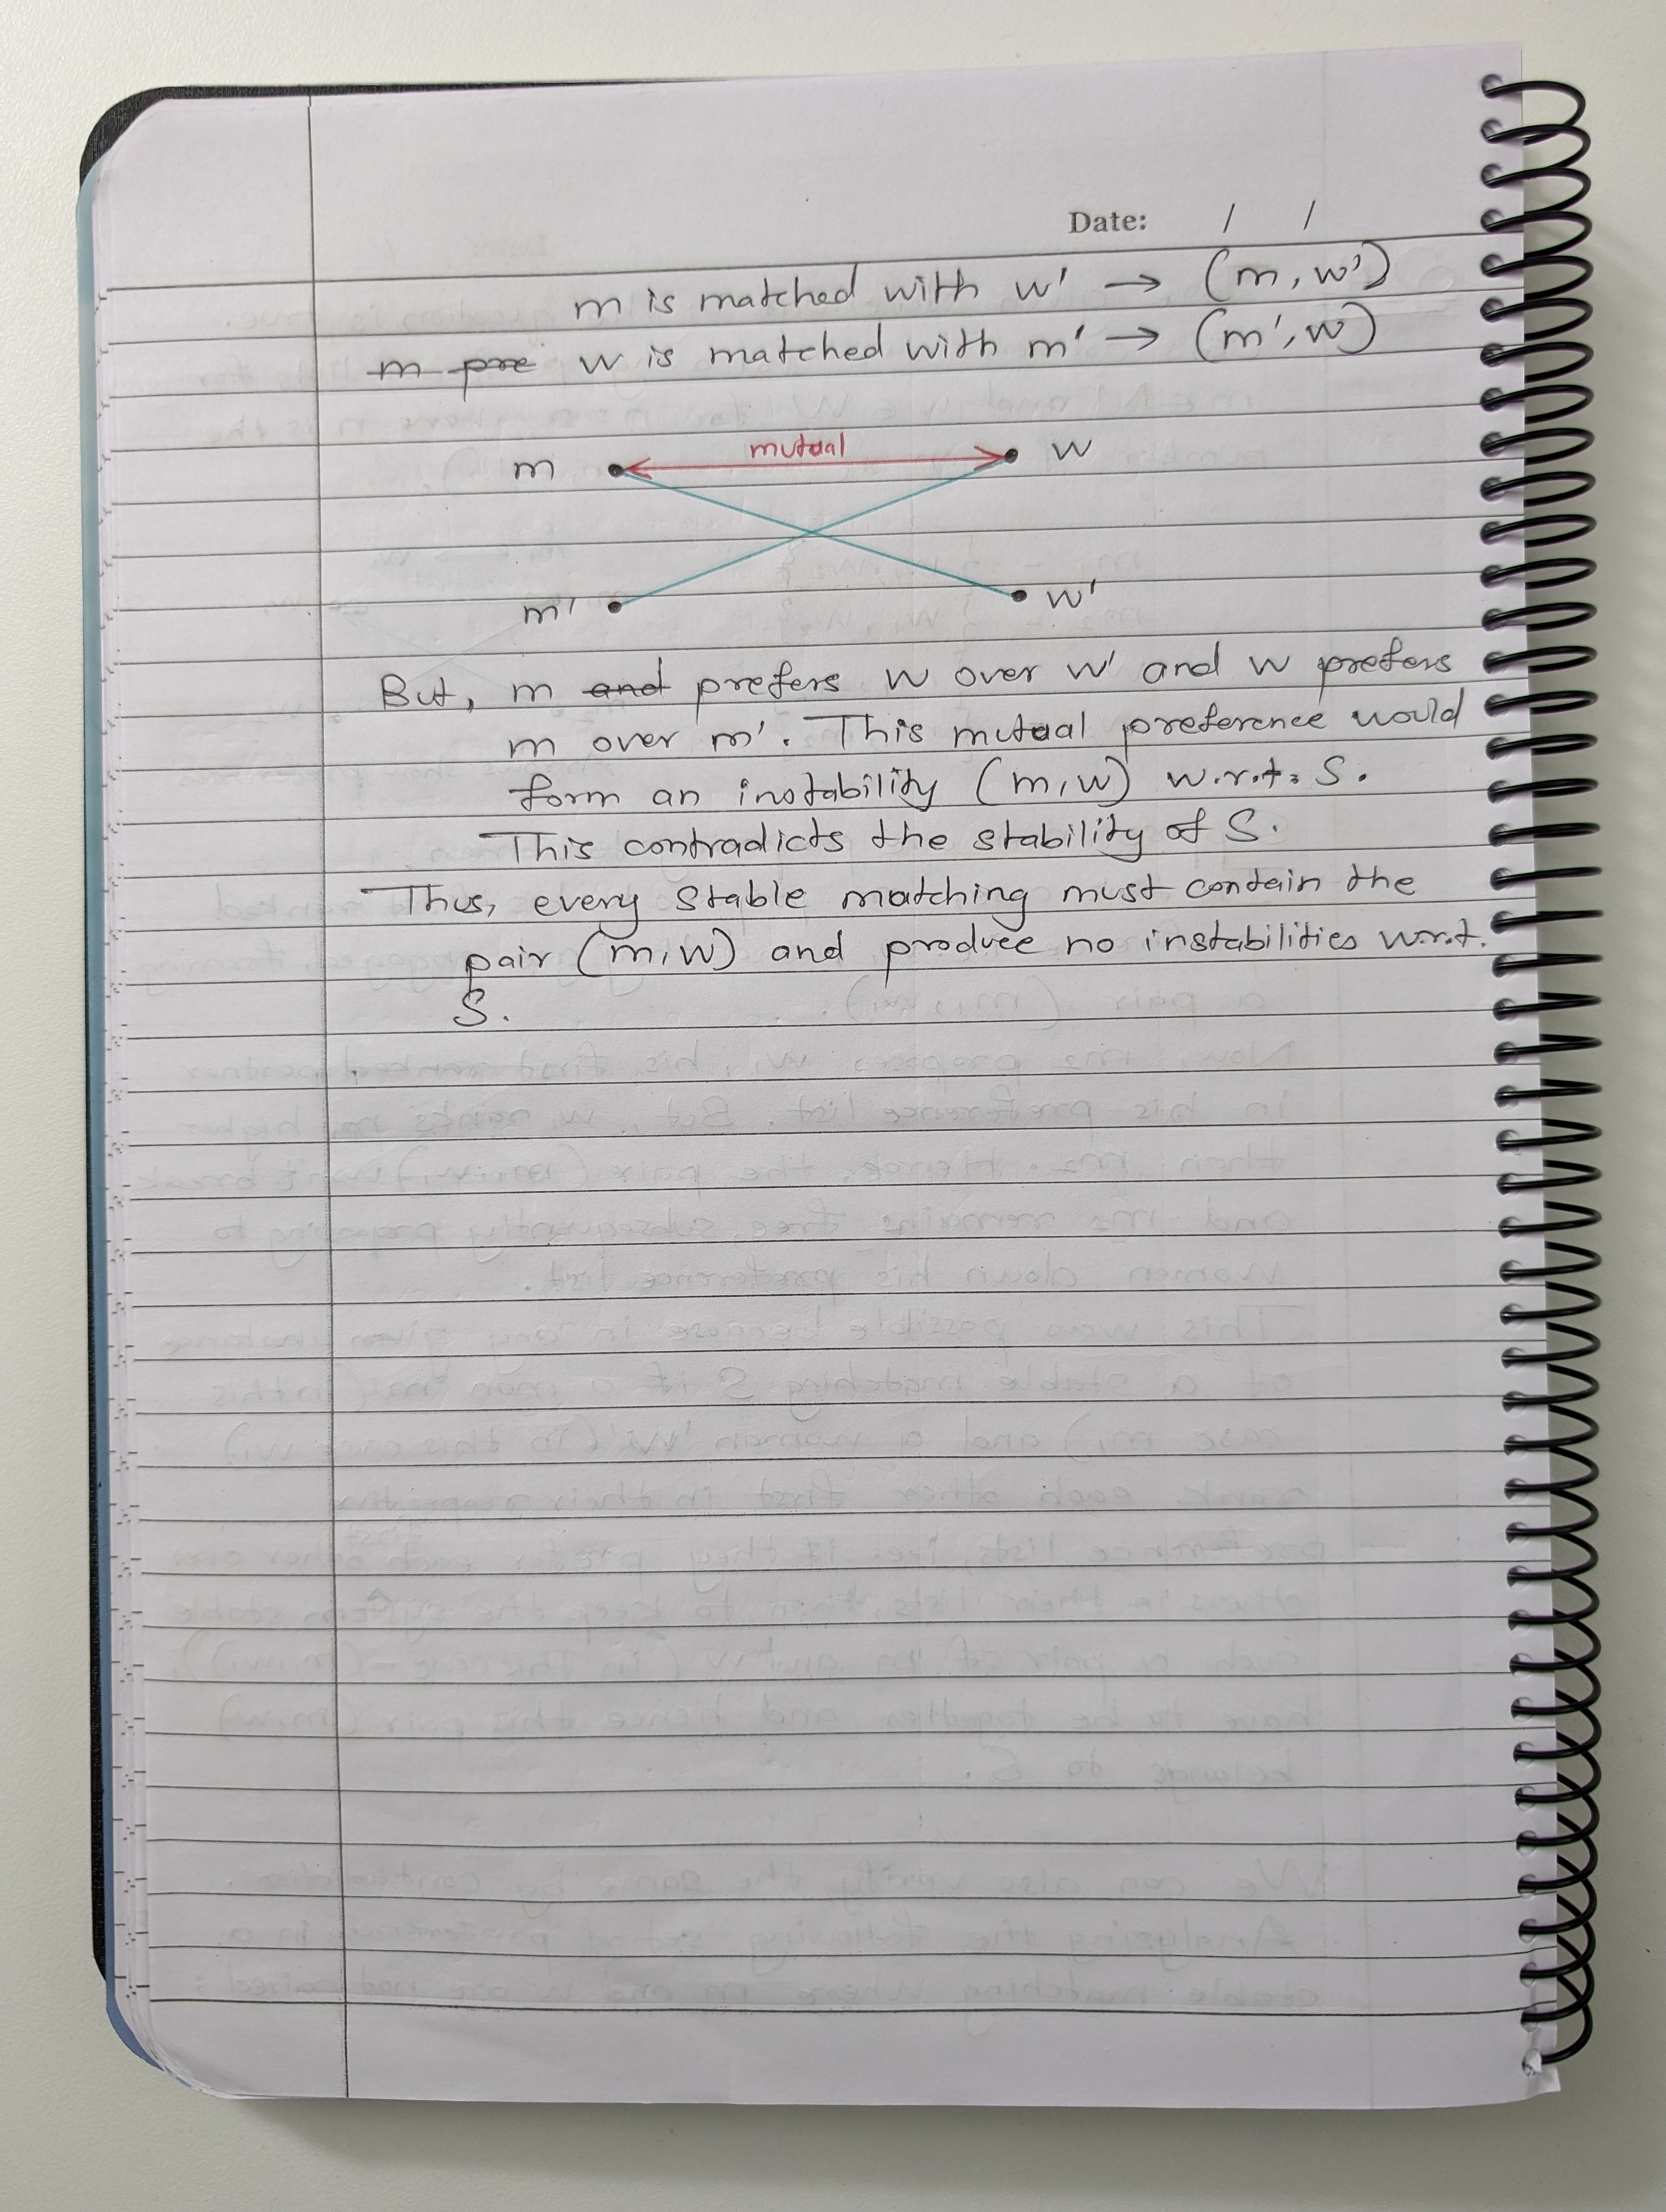 Date: / /
m is matched with w' → (m, w')
m pre w is matched with m' → (m', w)
mutual
m w
m' w'
But, m and prefers w over w' and w prefers
m over m'. This mutual preference would
form an instability (m, w) w.r.t. S.
This contradicts the stability of S.
Thus, every stable matching must contain the
pair (m, w) and produce no instabilities w.r.t.
S.